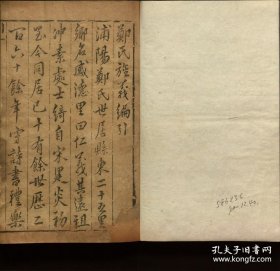 鄭氏旌義編引
浦陽鄭氏世居縣東二十五里
鄉名感德里曰仁義其遠祖
冲素處士綺自宋建炎初
至今同居已十有餘世歷二
百六十餘年守詩書禮樂
586836
Jan.12.40.
孔夫子旧书网